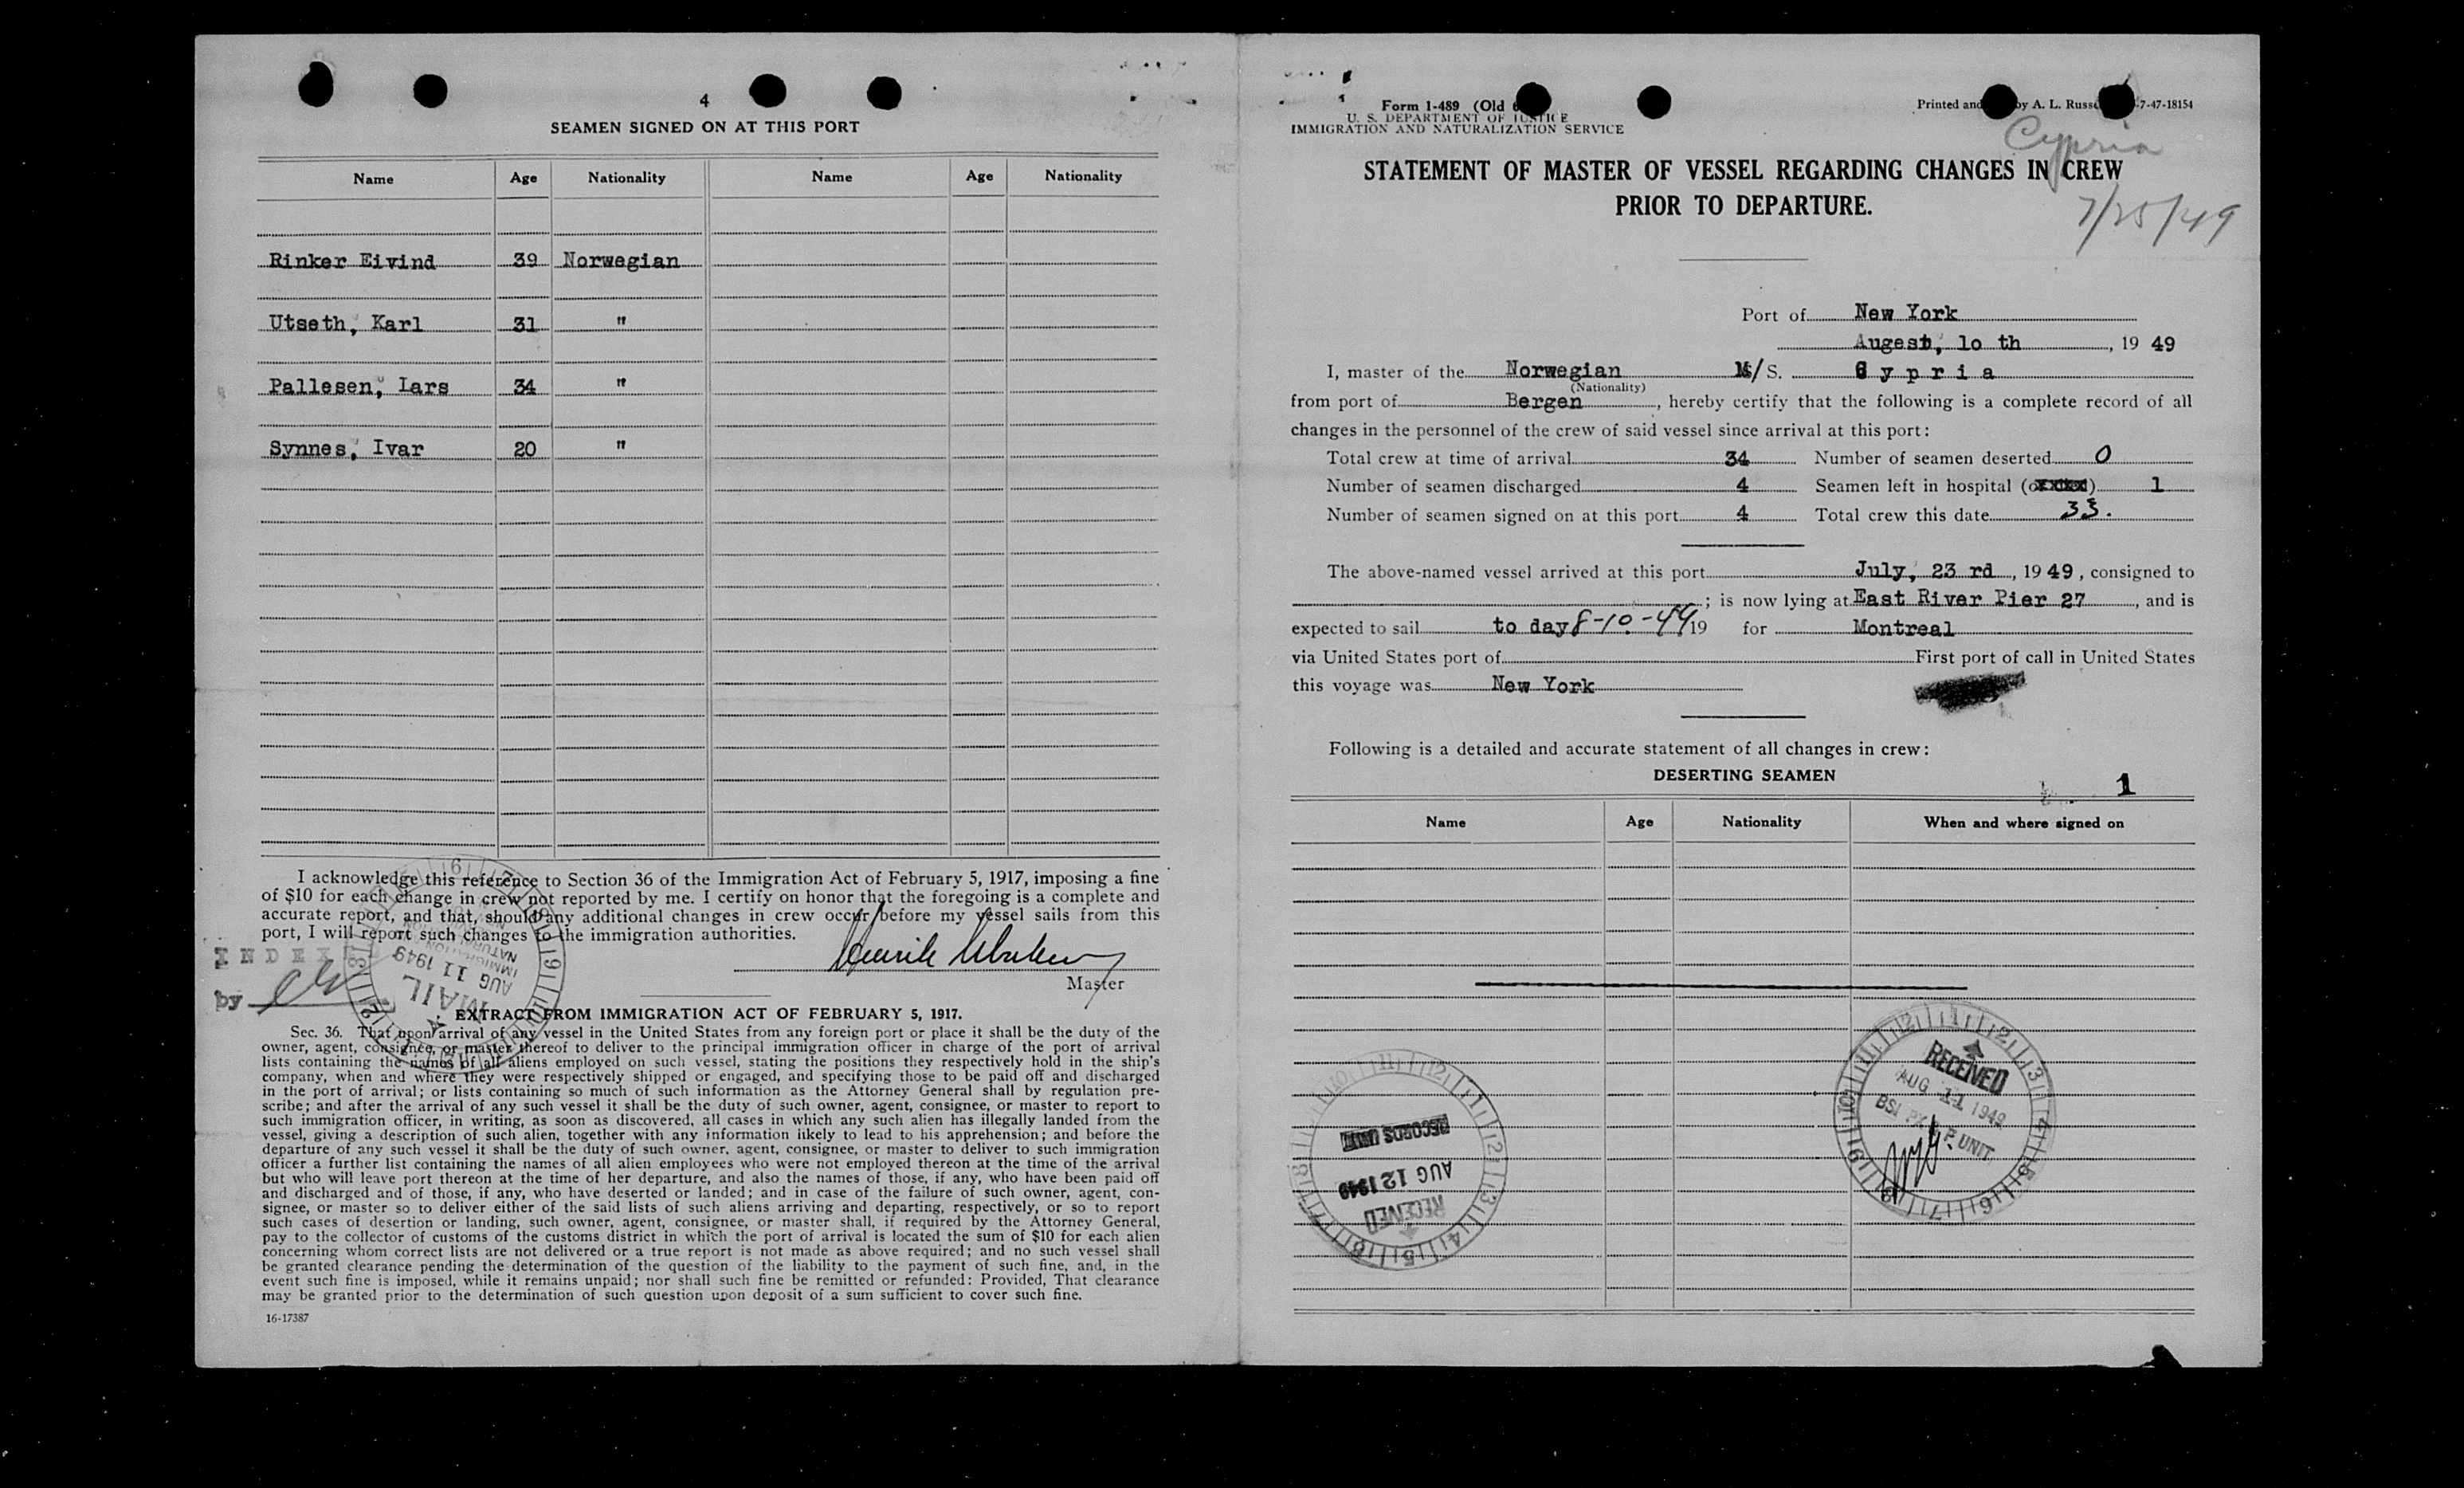 4
SEAMEN SIGNED ON AT THIS PORT
Name Age Nationality Name Age Nationality
Rinker Eivind 39 Norwegian
Utseth, Karl 31 "
Pallesen, Lars 34 "
Synnes, Ivar 20 "
I acknowledge this reference to Section 36 of the Immigration Act of February 5, 1917, imposing a fine
of $10 for each change in crew not reported by me. I certify on honor that the foregoing is a complete and
accurate report, and that, should any additional changes in crew occur before my vessel sails from this
port, I will report such changes to the immigration authorities.
INDEX
by
Master
MAIL
AUG 11 1949
EXTRACT FROM IMMIGRATION ACT OF FEBRUARY 5, 1917.
Sec. 36. That upon arrival of any vessel in the United States from any foreign port or place it shall be the duty of the
owner, agent, consignee, or master thereof to deliver to the principal immigration officer in charge of the port of arrival
lists containing the names of all aliens employed on such vessel, stating the positions they respectively hold in the ship's
company, when and where they were respectively shipped or engaged, and specifying those to be paid off and discharged
in the port of arrival; or lists containing so much of such information as the Attorney General shall by regulation pre-
scribe; and after the arrival of any such vessel it shall be the duty of such owner, agent, consignee, or master to report to
such immigration officer, in writing, as soon as discovered, all cases in which any such alien has illegally landed from the
vessel, giving a description of such alien, together with any information likely to lead to his apprehension; and before the
departure of any such vessel it shall be the duty of such owner, agent, consignee, or master to deliver to such immigration
officer a further list containing the names of all alien employees who were not employed thereon at the time of the arrival
but who will leave port thereon at the time of her departure, and also the names of those, if any, who have been paid off
and discharged and of those, if any, who have deserted or landed; and in case of the failure of such owner, agent, con-
signee, or master so to deliver either of the said lists of such aliens arriving and departing, respectively, or so to report
such cases of desertion or landing, such owner, agent, consignee, or master shall, if required by the Attorney General,
pay to the collector of customs of the customs district in which the port of arrival is located the sum of $10 for each alien
concerning whom correct lists are not delivered or a true report is not made as above required; and no such vessel shall
be granted clearance pending the determination of the question of the liability to the payment of such fine, and, in the
event such fine is imposed, while it remains unpaid; nor shall such fine be remitted or refunded: Provided, That clearance
may be granted prior to the determination of such question upon deposit of a sum sufficient to cover such fine.
16-17387
Form 1-489 (Old
U. S. DEPARTMENT OF JUSTICE
IMMIGRATION AND NATURALIZATION SERVICE
Printed and by A. L. Russ 7-47-18154
Cypria
STATEMENT OF MASTER OF VESSEL REGARDING CHANGES IN CREW
PRIOR TO DEPARTURE.
7/25/49
Port of New York
Augest, 1o th, 19 49
I, master of the Norwegian M/S. Cypria
(Nationality)
from port of Bergen, hereby certify that the following is a complete record of all
changes in the personnel of the crew of said vessel since arrival at this port:
Total crew at time of arrival 34 Number of seamen deserted 0
Number of seamen discharged 4 Seamen left in hospital ( ) 1
Number of seamen signed on at this port 4 Total crew this date 33.
The above-named vessel arrived at this port July, 23 rd, 19 49, consigned to
; is now lying at East River Pier 27, and is
expected to sail to day 8-10-49 19 for Montreal
via United States port of First port of call in United States
this voyage was New York
Following is a detailed and accurate statement of all changes in crew:
DESERTING SEAMEN
1
Name Age Nationality When and where signed on
RECEIVED
AUG 11 1949
UNIT
RECORDS UNIT
AUG 12 1949
RECEIVED